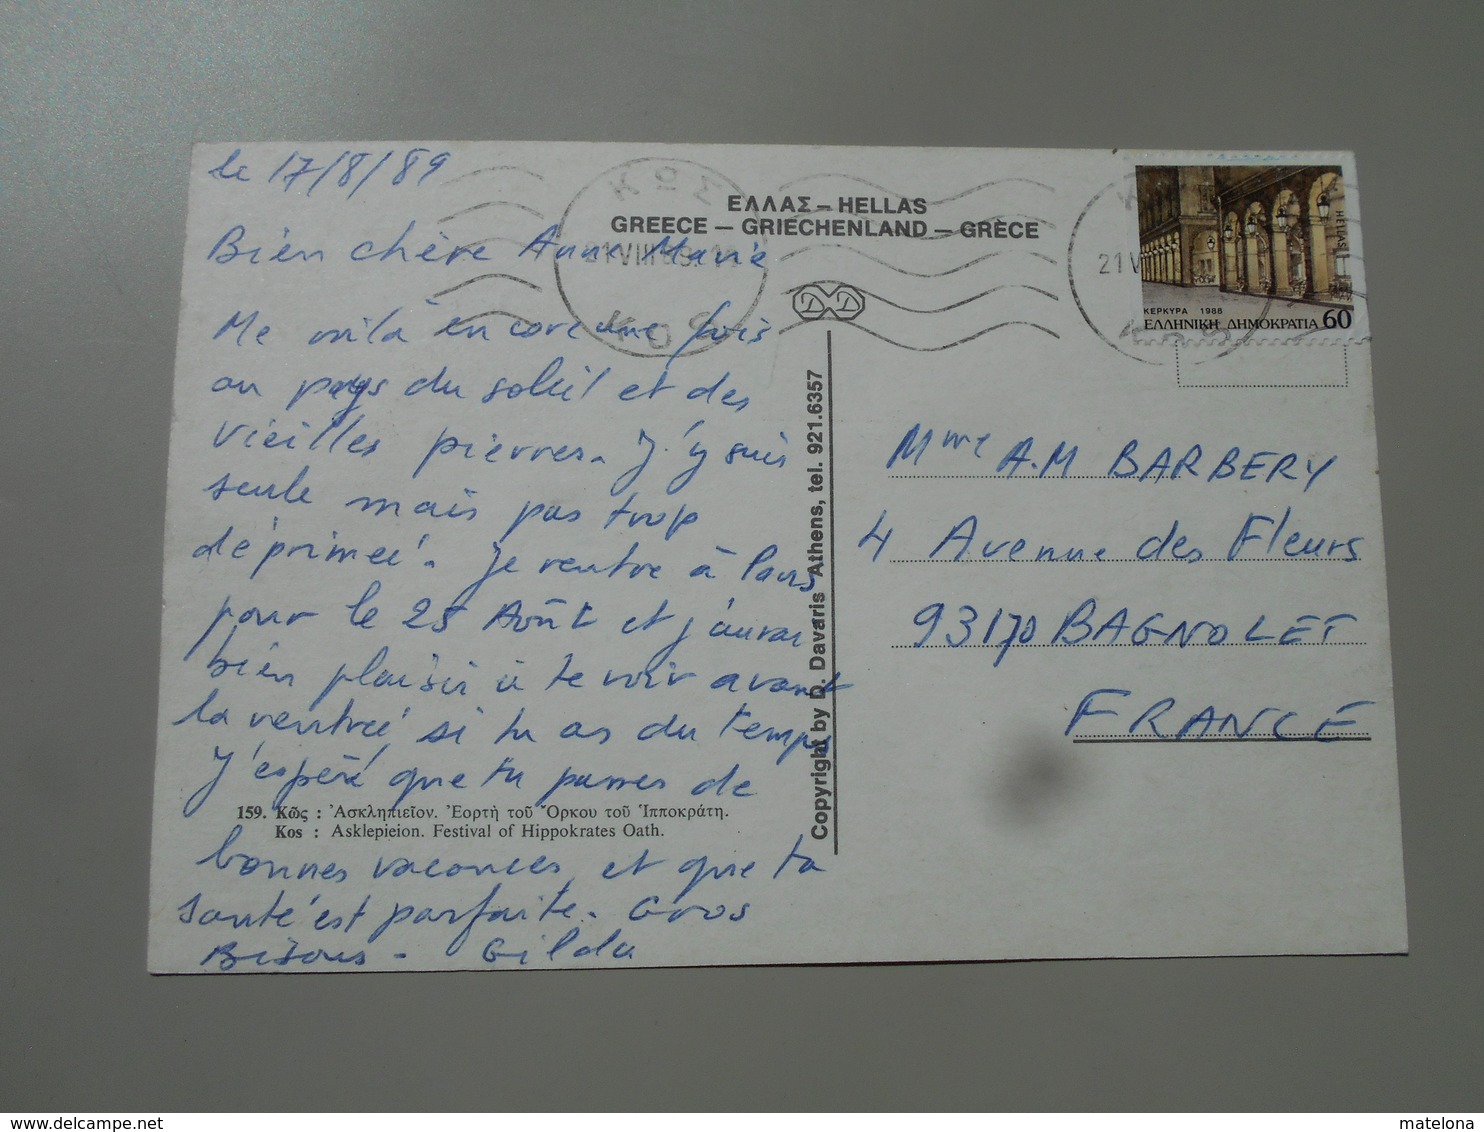 le 17/8/89
Bien chère Anne Marie
Me voilà encore une fois
au pays du soleil et des
vieilles pierres. J'y suis
seule mais pas trop
déprimée. Je rentre à Paris
pour le 25 Août et j'aurai
bien plaisir à te voir avant
la rentrée si tu as du temps
J'espère que tu passes de
159. Κῶς : Ἀσκληπιεῖον. Ἑορτὴ τοῦ Ὅρκου τοῦ Ἱπποκράτη.
Kos : Asklepieion. Festival of Hippokrates Oath.
bonnes vacances et que ta
santé est parfaite. Gros
Bisous - Gilda
ΚΩΣ
21 VIII 89
KOS
ΕΛΛΑΣ – HELLAS
GREECE – GRIECHENLAND – GRÈCE
D D
Copyright by D. Davaris Athens, tel. 921.6357
21 V
KOS
HELLAS
ΚΕΡΚΥΡΑ 1988
ΕΛΛΗΝΙΚΗ ΔΗΜΟΚΡΑΤΙΑ 60
Mme A.M BARBERY
4 Avenue des Fleurs
93170 BAGNOLET
FRANCE
matelona